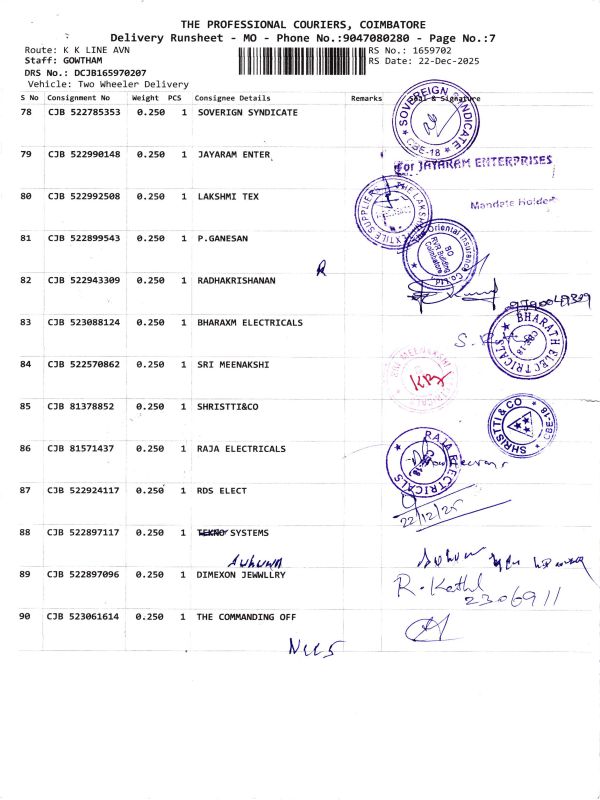 THE PROFESSIONAL COURIERS, COIMBATORE
Delivery Runsheet - MO - Phone No.:9047080280 - Page No.:7
Route: K K LINE AVN
RS No.: 1659702
Staff: GOWTHAM
RS Date: 22-Dec-2025
DRS No.: DCJB165970207
Vehicle: Two Wheeler Delivery
S No Consignment No Weight PCS Consignee Details Remarks Seal & Signature
78 CJB 522785353 0.250 1 SOVERIGN SYNDICATE
SOVEREIGN SYNDICATE
CBE-18
79 CJB 522990148 0.250 1 JAYARAM ENTER
For JAYARAM ENTERPRISES
80 CJB 522992508 0.250 1 LAKSHMI TEX
Mandate Holder
81 CJB 522899543 0.250 1 P.GANESAN
The Oriental Insurance Co. Ltd.
BO
RVR Building
Coimbatore
82 CJB 522943309 0.250 1 RADHAKRISHANAN
83 CJB 523088124 0.250 1 BHARAXM ELECTRICALS
BHARATH ELECTRICALS
84 CJB 522570862 0.250 1 SRI MEENAKSHI
85 CJB 81378852 1 SHRISTTI&CO
0.250
SHRISTTI & CO
CBE-18
86 CJB 81571437 0.250 1 RAJA ELECTRICALS
RAJA ELECTRICALS
87 CJB 522924117 0.250 1 RDS ELECT
22/12/25
88 CJB 522897117 0.250 1 TEKNO SYSTEMS
89 CJB 522897096 0.250 1 DIMEXON JEWWLLRY
2306911
90 CJB 523061614 0.250 1 THE COMMANDING OFF